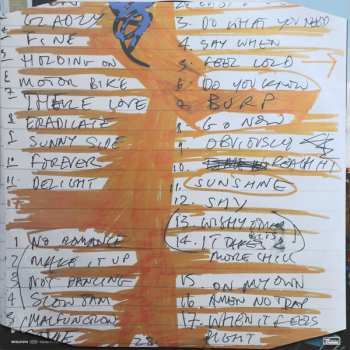 GLADLY
FINE
HOLDING ON
MOTOR BIKE
THERE LOVE
8 ERADICATE
9 SUNNY SIDE
10 FOREVER
11 DELIGHT
1 NO ROMANCE
2 MAKE IT UP
3 NOT DANCING
4 SLOW JAM
5 MALFUNCTION
3. DO WHAT YOU NEED
4. SAY WHEN
5. FEEL COLD
6. DO YOU KNOW
7. BURP
8. GO NOW
9. OBVIOUSLY
10. REACH IT
11. SUNSHINE
12. SAY
13. WISHY
14. IT TAKES
MORE CHILL
15. ON MY OWN
16. AMEN NOT DAY
17. WHEN IT FEELS
RIGHT